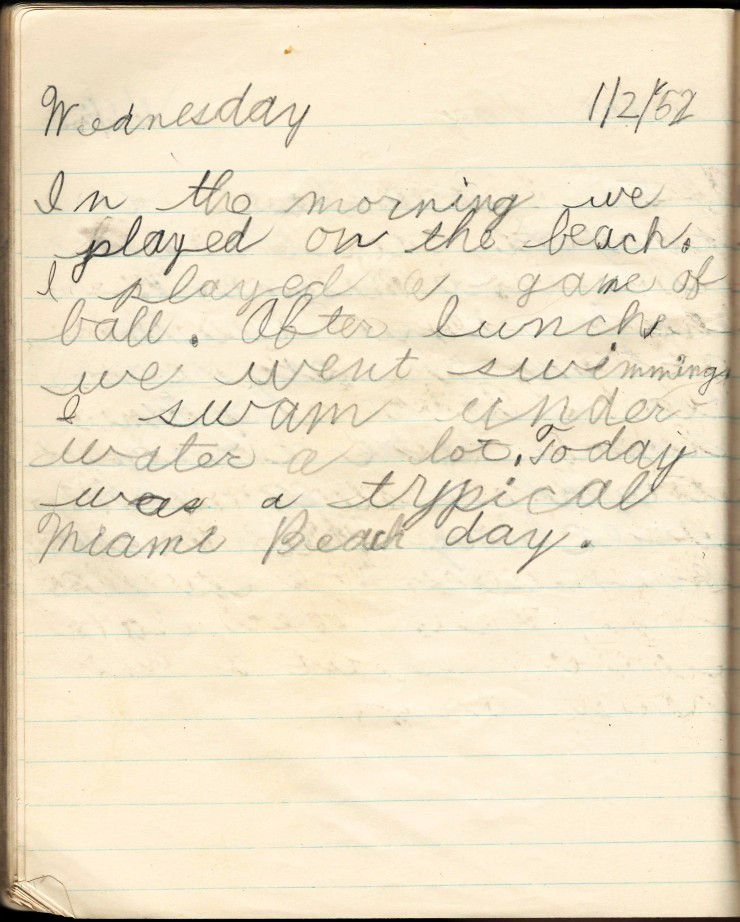 Wednesday 1/2/'52
In the morning we
played on the beach.
I played a game of
ball. After lunch
we went swimming.
I swam under
water a lot. Today
was a trypical
Miami Beach day.